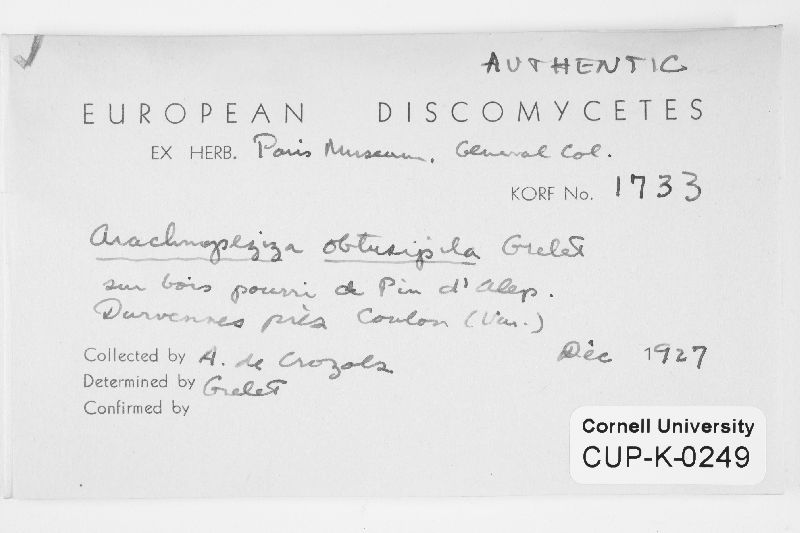 AUTHENTIC
EUROPEAN DISCOMYCETES
EX HERB. Paris Museum, General Col.
KORF No. 1733
Arachnopeziza obtusipila Grelet
sur bois pourri de Pin d'Alep.
Darvennes près Toulon (Var.)
Collected by A. de Crozals Déc 1927
Determined by Grelet
Confirmed by
Cornell University
CUP-K-0249